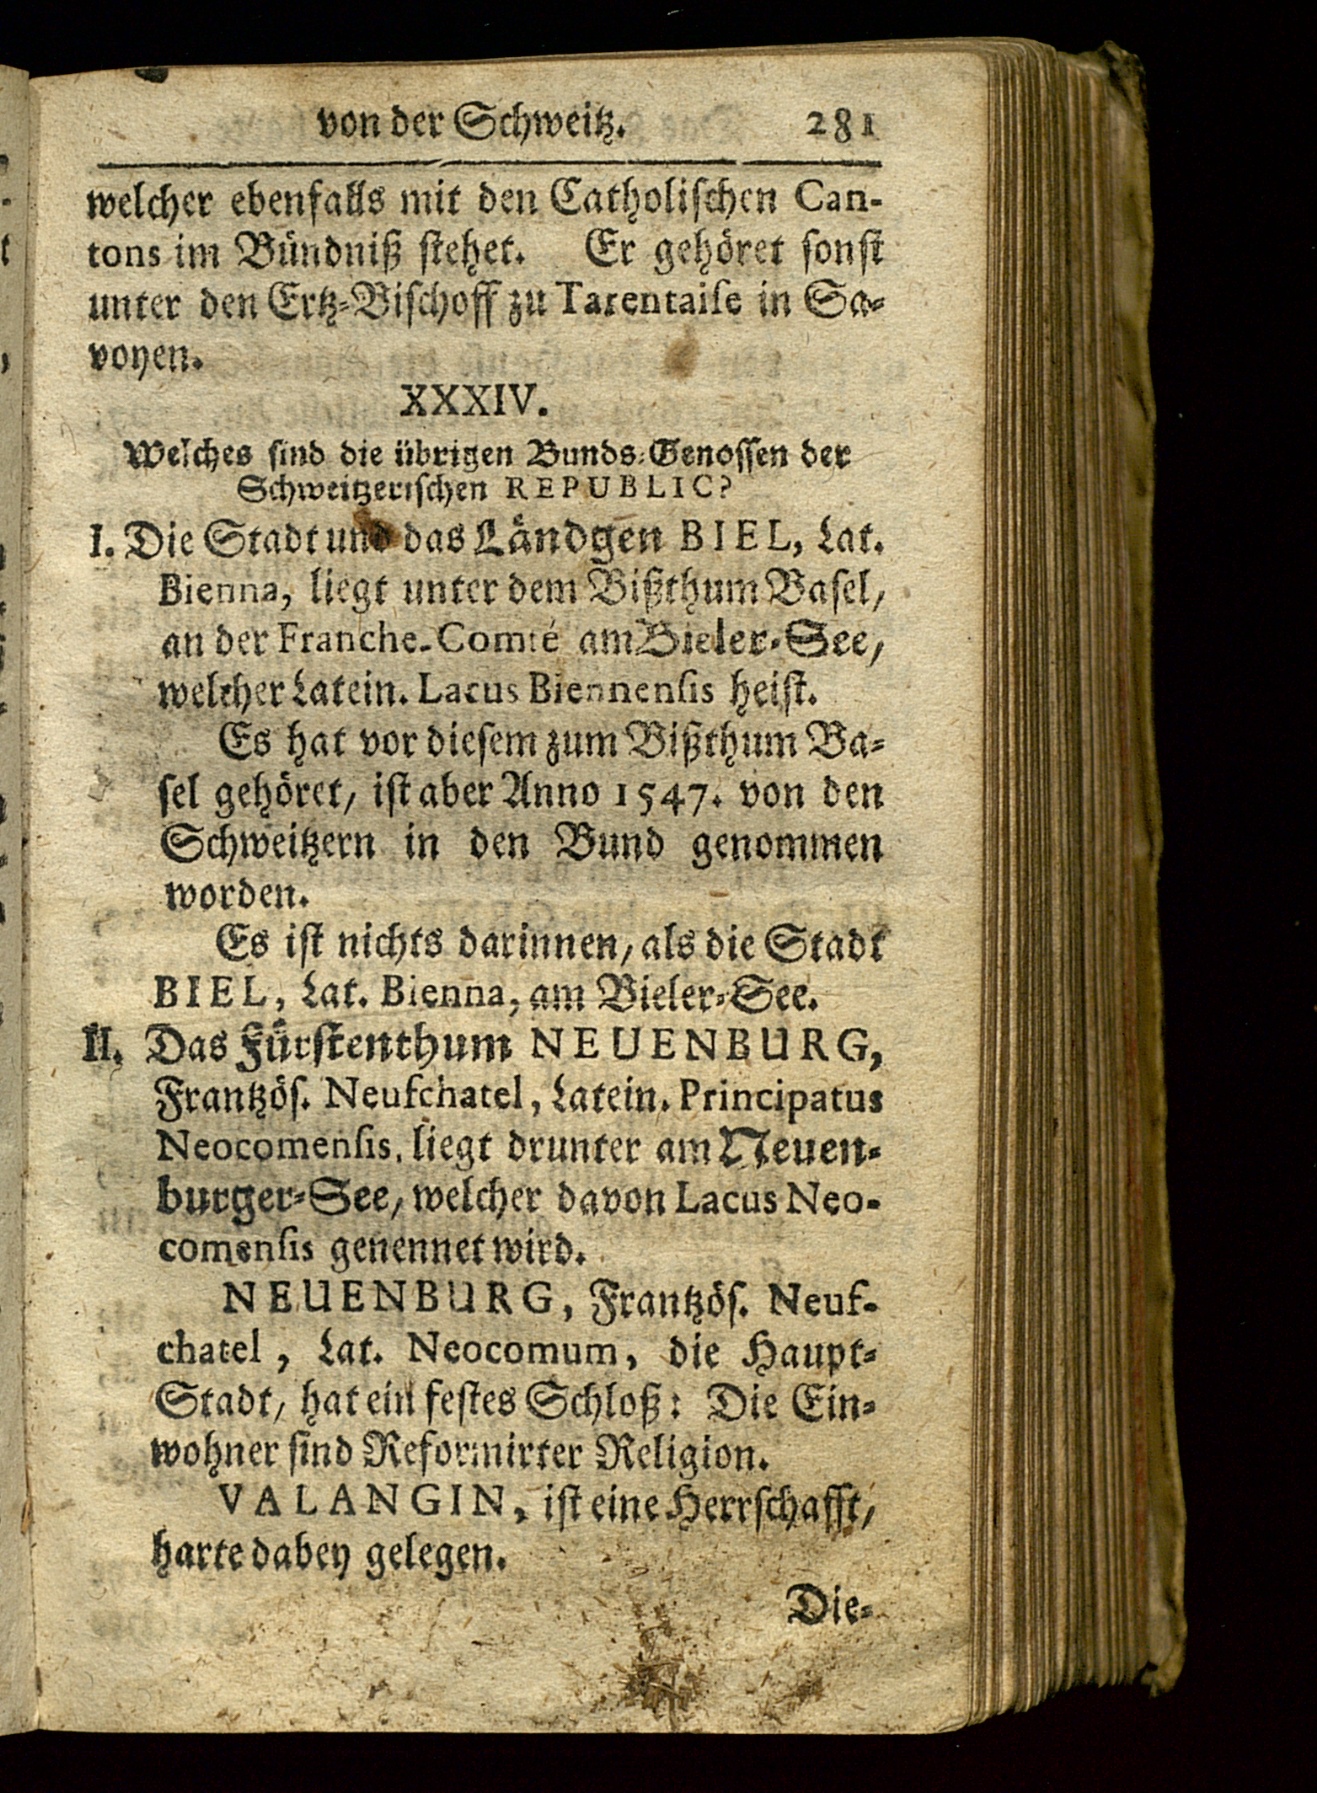 von der Schweitz. 281
welcher ebenfalls mit den Catholischen Can-
tons im Bündniß stehet. Er gehöret sonst
unter den Ertz-Bischoff zu Tarentaise in Sa-
voyen.
XXXIV.
Welches sind die übrigen Bunds-Genossen der
Schweitzerischen REPUBLIC?
I. Die Stadt und das Ländgen BIEL, Lat.
Bienna, liegt unter dem Bißthum Basel,
an der Franche-Comté am Bieler-See,
welcher Latein. Lacus Biennensis heist.
Es hat vor diesem zum Bißthum Ba-
sel gehöret, ist aber Anno 1547. von den
Schweitzern in den Bund genommen
worden.
Es ist nichts darinnen, als die Stadt
BIEL, Lat. Bienna, am Bieler-See.
II. Das Fürstenthum NEUENBURG,
Frantzös. Neufchatel, Latein. Principatus
Neocomensis, liegt drunter am Neuen-
burger-See, welcher davon Lacus Neo-
comensis genennet wird.
NEUENBURG, Frantzös. Neuf-
chatel, Lat. Neocomum, die Haupt-
Stadt, hat ein festes Schloß: Die Ein-
wohner sind Reformirter Religion.
VALANGIN, ist eine Herrschafft,
harte dabey gelegen.
Die-